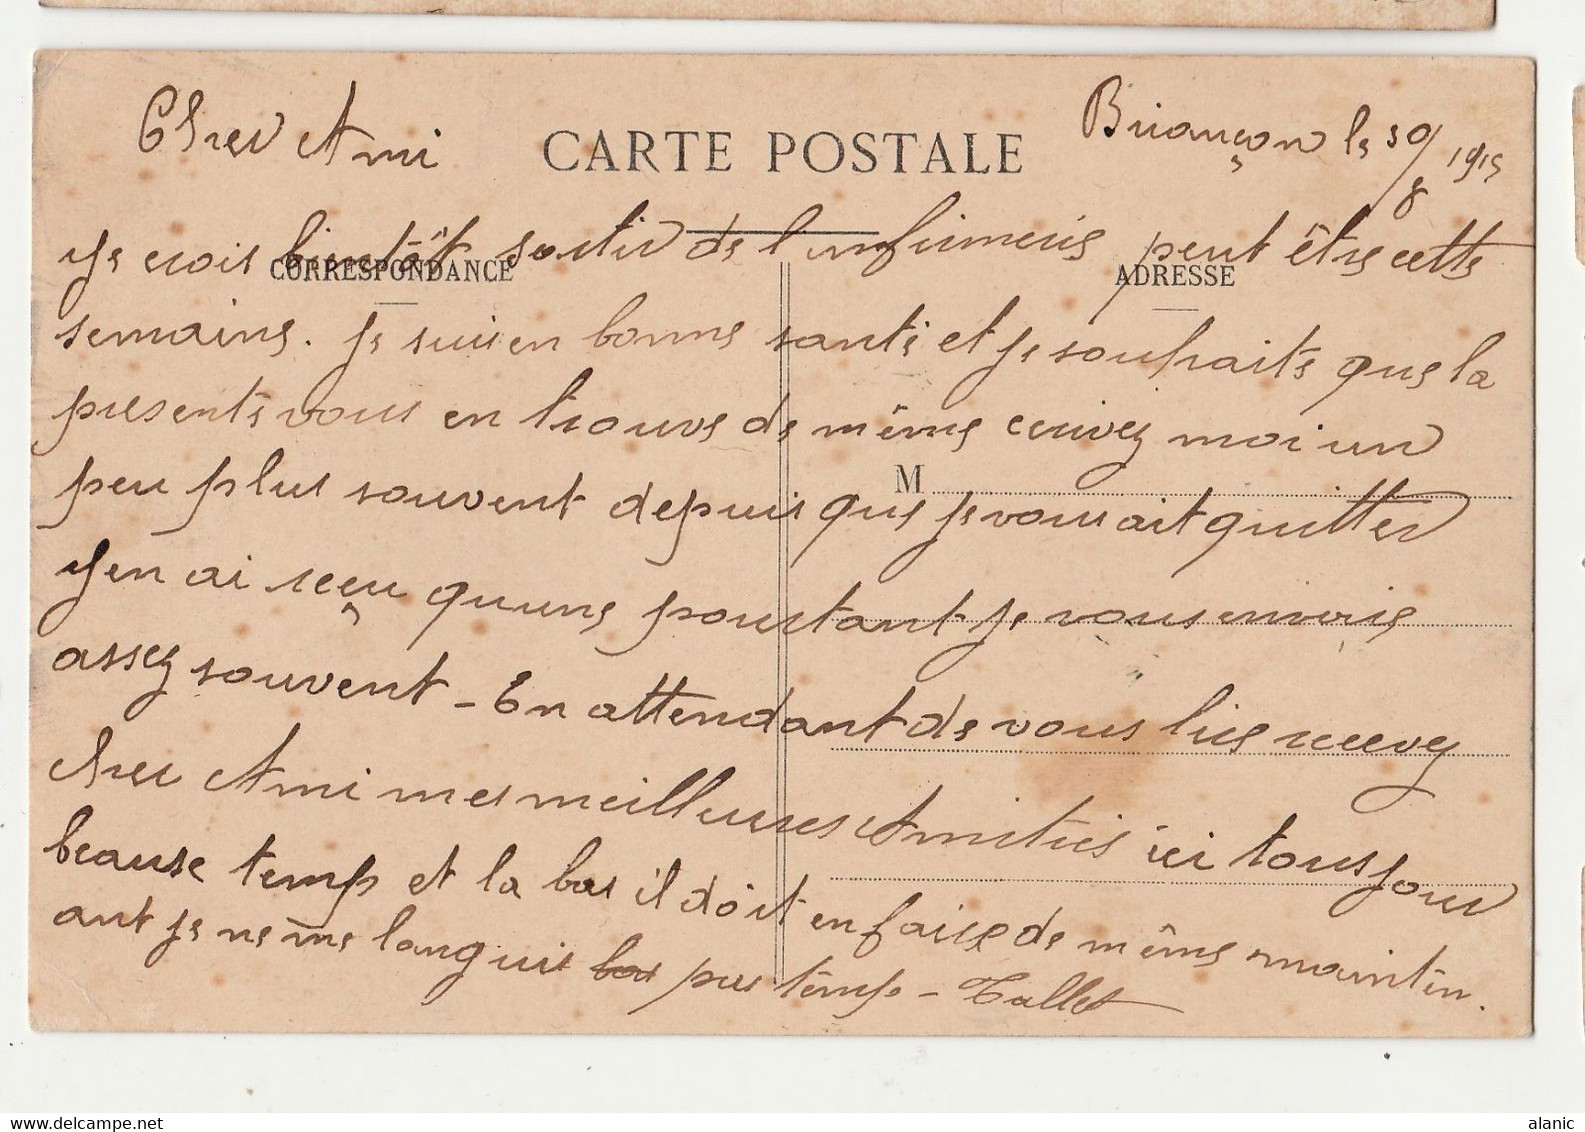 Briançon le 30/8 1915
Cher Ami
CARTE POSTALE
CORRESPONDANCE
ADRESSE
M
Je crois bientôt sortir de l'infirmerie peut être cette
semaine. Je suis en bonne santé et je souhaite que la
présente vous en trouve de même ecrivez moi un
peu plus souvent depuis que je vous ait quitter
J'en ai reçu qu'une pourtant je vous envoie
assez souvent - En attendant de vous lire recevez
cher Ami mes meilleures Amitiés ici tousjour
beause temp et la bas il dôit en faire de même maintén.
ant je ne même languis bas pas témp - Tallet
alanic